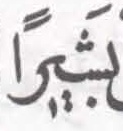 بَشِيرًا